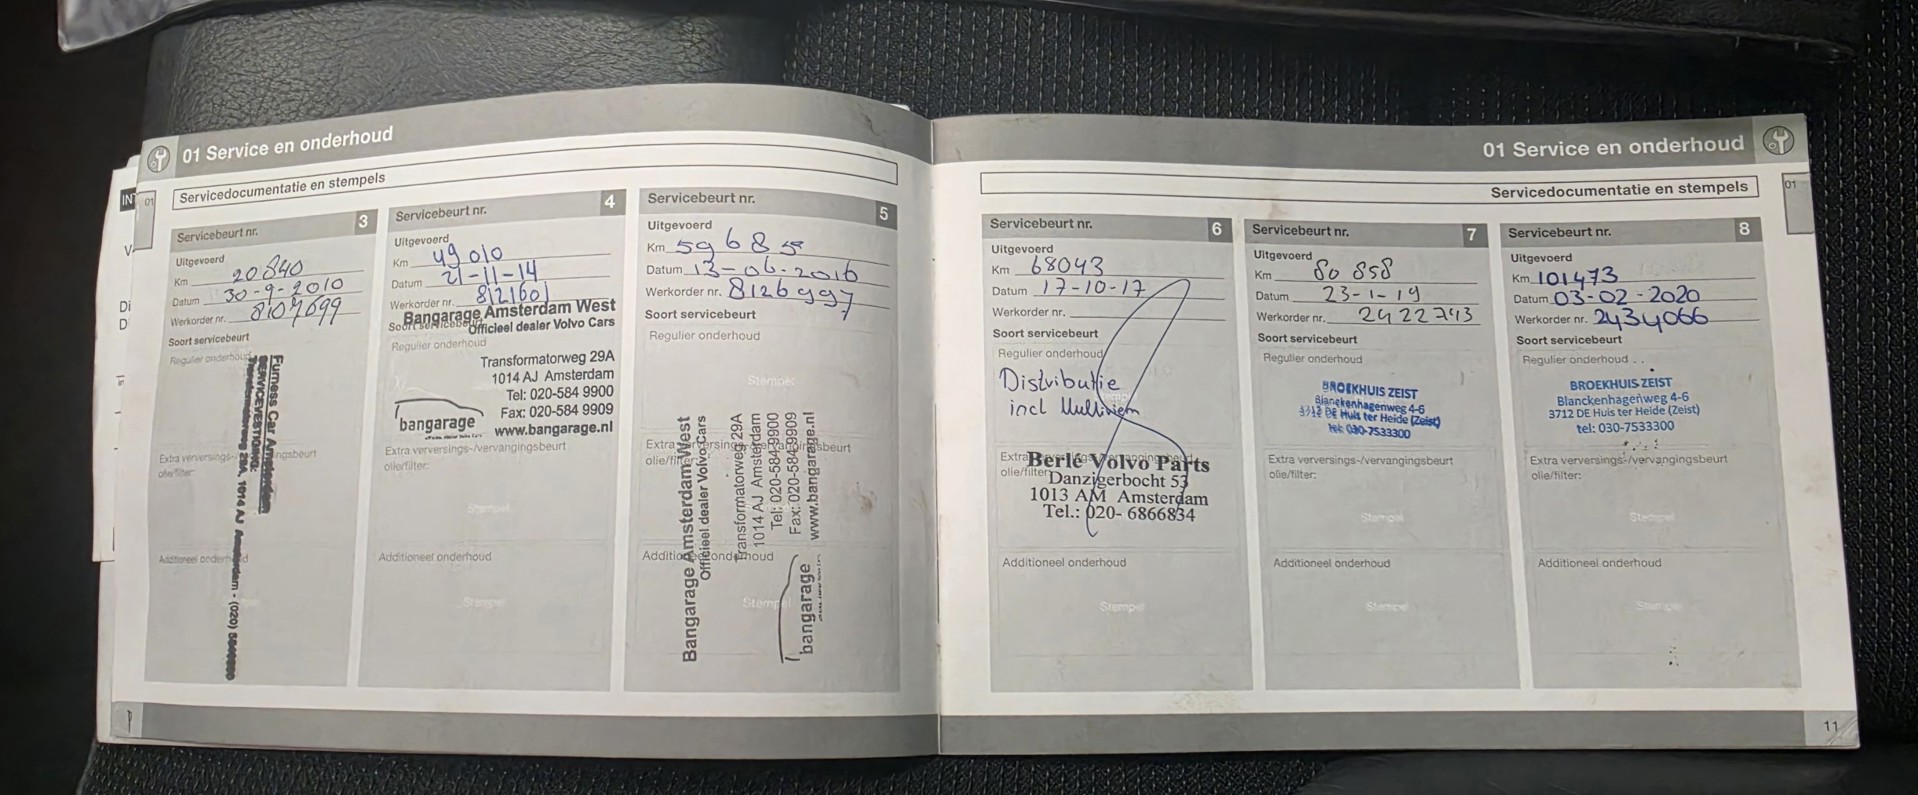 01 Service en onderhoud
Servicedocumentatie en stempels
IN
01
Servicebeurt nr. 3
Uitgevoerd
Km 20840
Datum 30-9-2010
Werkorder nr. 8107699
Soort servicebeurt
Regulier onderhoud
Furness Car Amsterdam
Transformatorweg 29A, 1014 AJ Amsterdam - (020)
Extra verversings-
ngsbeurt
olie/filter:
Additioneel onderhoud
Servicebeurt nr. 4
Uitgevoerd
Km 49010
Datum 21-11-14
Werkorder nr. 8121601
Soort servicebeurt
Bangarage Amsterdam West
Officieel dealer Volvo Cars
Regulier onderhoud
Transformatorweg 29A
1014 AJ Amsterdam
Tel: 020-584 9900
Fax: 020-584 9909
www.bangarage.nl
bangarage
Extra verversings-/vervangingsbeurt
olie/filter:
Stempel
Additioneel onderhoud
Stempel
Servicebeurt nr. 5
Uitgevoerd
Km 59685
Datum 13-06-2016
Werkorder nr. 8126997
Soort servicebeurt
Regulier onderhoud
Stempel
Extra verversings-/vervangingsbeurt
olie/filter:
Additioneel onderhoud
Stempel
Bangarage Amsterdam West
Officieel dealer Volvo Cars
Transformatorweg 29A
1014 AJ Amsterdam
Tel: 020-584 9900
Fax: 020-584 9909
www.bangarage.nl
bangarage
01 Service en onderhoud
Servicedocumentatie en stempels
01
Servicebeurt nr. 6
Uitgevoerd
Km 68043
Datum 17-10-17
Werkorder nr.
Soort servicebeurt
Regulier onderhoud
Distributie
incl Multiriem
Extra
olie/filter:
Berlé Volvo Parts
Danzigerbocht 53
1013 AM Amsterdam
Tel.: 020- 6866834
Additioneel onderhoud
Stempel
Servicebeurt nr. 7
Uitgevoerd
Km 80 858
Datum 23-1-19
Werkorder nr. 2422743
Soort servicebeurt
Regulier onderhoud
BROEKHUIS ZEIST
Blanckenhagenweg 4-6
3712 DE Huis ter Heide (Zeist)
tel: 030-7533300
Extra verversings-/vervangingsbeurt
olie/filter:
Stempel
Additioneel onderhoud
Stempel
Servicebeurt nr. 8
Uitgevoerd
Km 101473
Datum 03-02-2020
Werkorder nr. 2434066
Soort servicebeurt
Regulier onderhoud
BROEKHUIS ZEIST
Blanckenhagenweg 4-6
3712 DE Huis ter Heide (Zeist)
tel: 030-7533300
Extra verversings-/vervangingsbeurt
olie/filter:
Stempel
Additioneel onderhoud
Stempel
11